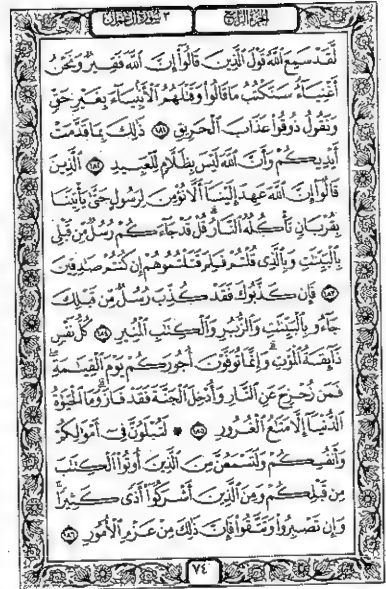 الجزء الرابع
٣ سورة آل عمران
لَّقَدْ سَمِعَ اللَّهُ قَوْلَ الَّذِينَ قَالُوا إِنَّ اللَّهَ فَقِيرٌ وَنَحْنُ
أَغْنِيَاءُ سَنَكْتُبُ مَا قَالُوا وَقَتْلَهُمُ الْأَنبِيَاءَ بِغَيْرِ حَقٍّ
وَنَقُولُ ذُوقُوا عَذَابَ الْحَرِيقِ ١٨١ ذَٰلِكَ بِمَا قَدَّمَتْ
أَيْدِيكُمْ وَأَنَّ اللَّهَ لَيْسَ بِظَلَّامٍ لِّلْعَبِيدِ ١٨٢ الَّذِينَ
قَالُوا إِنَّ اللَّهَ عَهِدَ إِلَيْنَا أَلَّا نُؤْمِنَ لِرَسُولٍ حَتَّىٰ يَأْتِيَنَا
بِقُرْبَانٍ تَأْكُلُهُ النَّارُ ۗ قُلْ قَدْ جَاءَكُمْ رُسُلٌ مِّن قَبْلِي
بِالْبَيِّنَٰتِ وَبِالَّذِي قُلْتُمْ فَلِمَ قَتَلْتُمُوهُمْ إِن كُنتُمْ صَٰدِقِينَ
١٨٣ فَإِن كَذَّبُوكَ فَقَدْ كُذِّبَ رُسُلٌ مِّن قَبْلِكَ
جَاءُو بِالْبَيِّنَٰتِ وَالزُّبُرِ وَالْكِتَٰبِ الْمُنِيرِ ١٨٤ كُلُّ نَفْسٍ
ذَائِقَةُ الْمَوْتِ ۗ وَإِنَّمَا تُوَفَّوْنَ أُجُورَكُمْ يَوْمَ الْقِيَٰمَةِ ۖ
فَمَن زُحْزِحَ عَنِ النَّارِ وَأُدْخِلَ الْجَنَّةَ فَقَدْ فَازَ ۗ وَمَا الْحَيَوٰةُ
الدُّنْيَا إِلَّا مَتَٰعُ الْغُرُورِ ١٨٥ ۞ لَتُبْلَوُنَّ فِي أَمْوَٰلِكُمْ
وَأَنفُسِكُمْ وَلَتَسْمَعُنَّ مِنَ الَّذِينَ أُوتُوا الْكِتَٰبَ
مِن قَبْلِكُمْ وَمِنَ الَّذِينَ أَشْرَكُوا أَذًى كَثِيرًا ۚ
وَإِن تَصْبِرُوا وَتَتَّقُوا فَإِنَّ ذَٰلِكَ مِنْ عَزْمِ الْأُمُورِ ١٨٦
٧٤